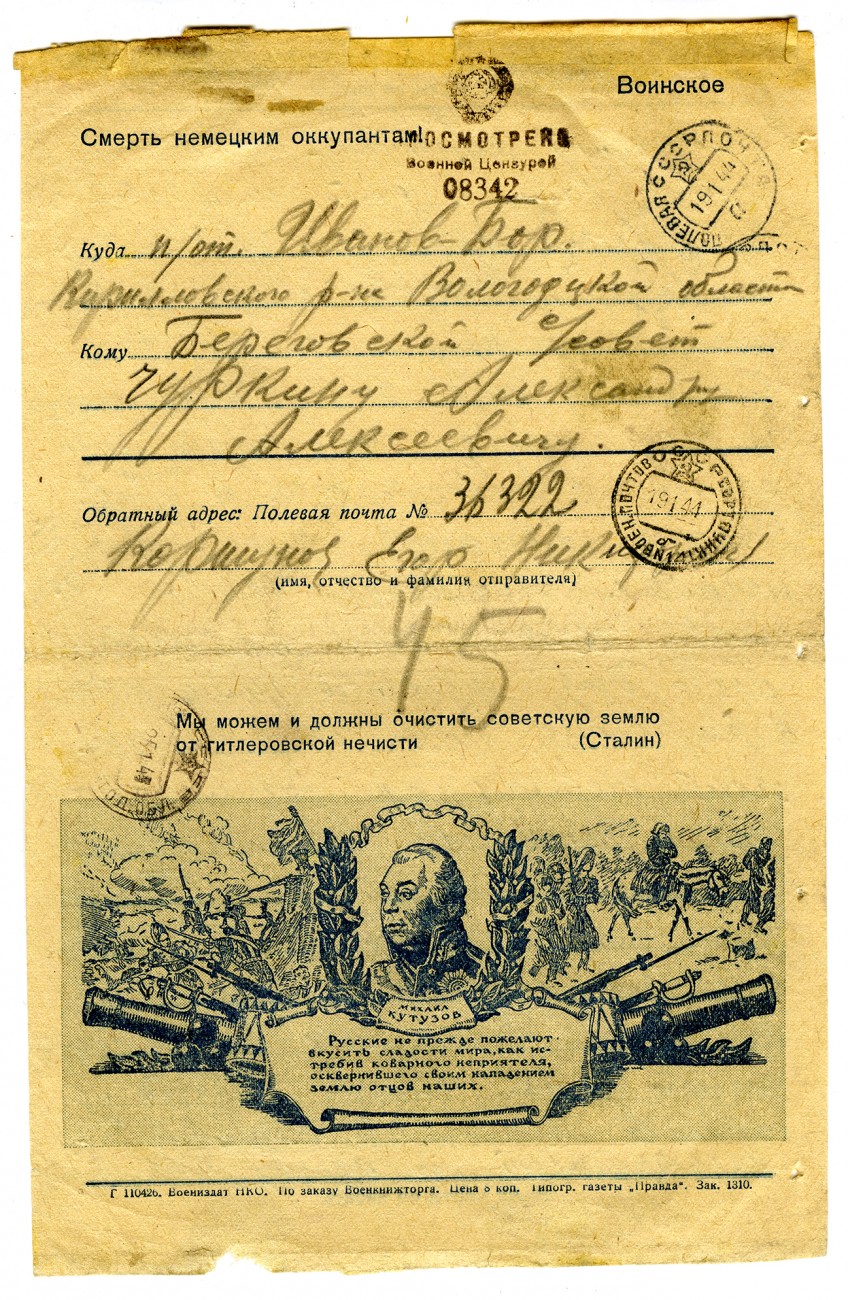 Воинское
Смерть немецким оккупантам!
ПРОСМОТРЕНО
Военной Цензурой
08342
ПОЛЕВАЯ СССР ПОЧТА
19 1 44
Куда п/от. Иванов-Бор.
Кирилловского р-на Вологодской области
Кому Береговской с/совет
Чуркину Александру
Алексеевичу.
Обратный адрес: Полевая почта № 36322
19 1 44
Коршунов Егор
(имя, отчество и фамилия отправителя)
45
Мы можем и должны очистить советскую землю
от гитлеровской нечисти (Сталин)
МИХАИЛ
КУТУЗОВ
Русские не прежде пожелают
вкусить сладости мира, как ис-
требив коварного неприятеля,
осквернившего своим нападением
землю отцов наших.
Г 110426. Воениздат НКО. По заказу Военкнижторга. Цена 8 коп. Типогр. газеты „Правда“. Зак. 1310.